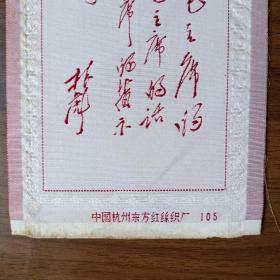 毛主席的
毛主席的话
席的指示
林彪
中国杭州东方红丝织厂 105